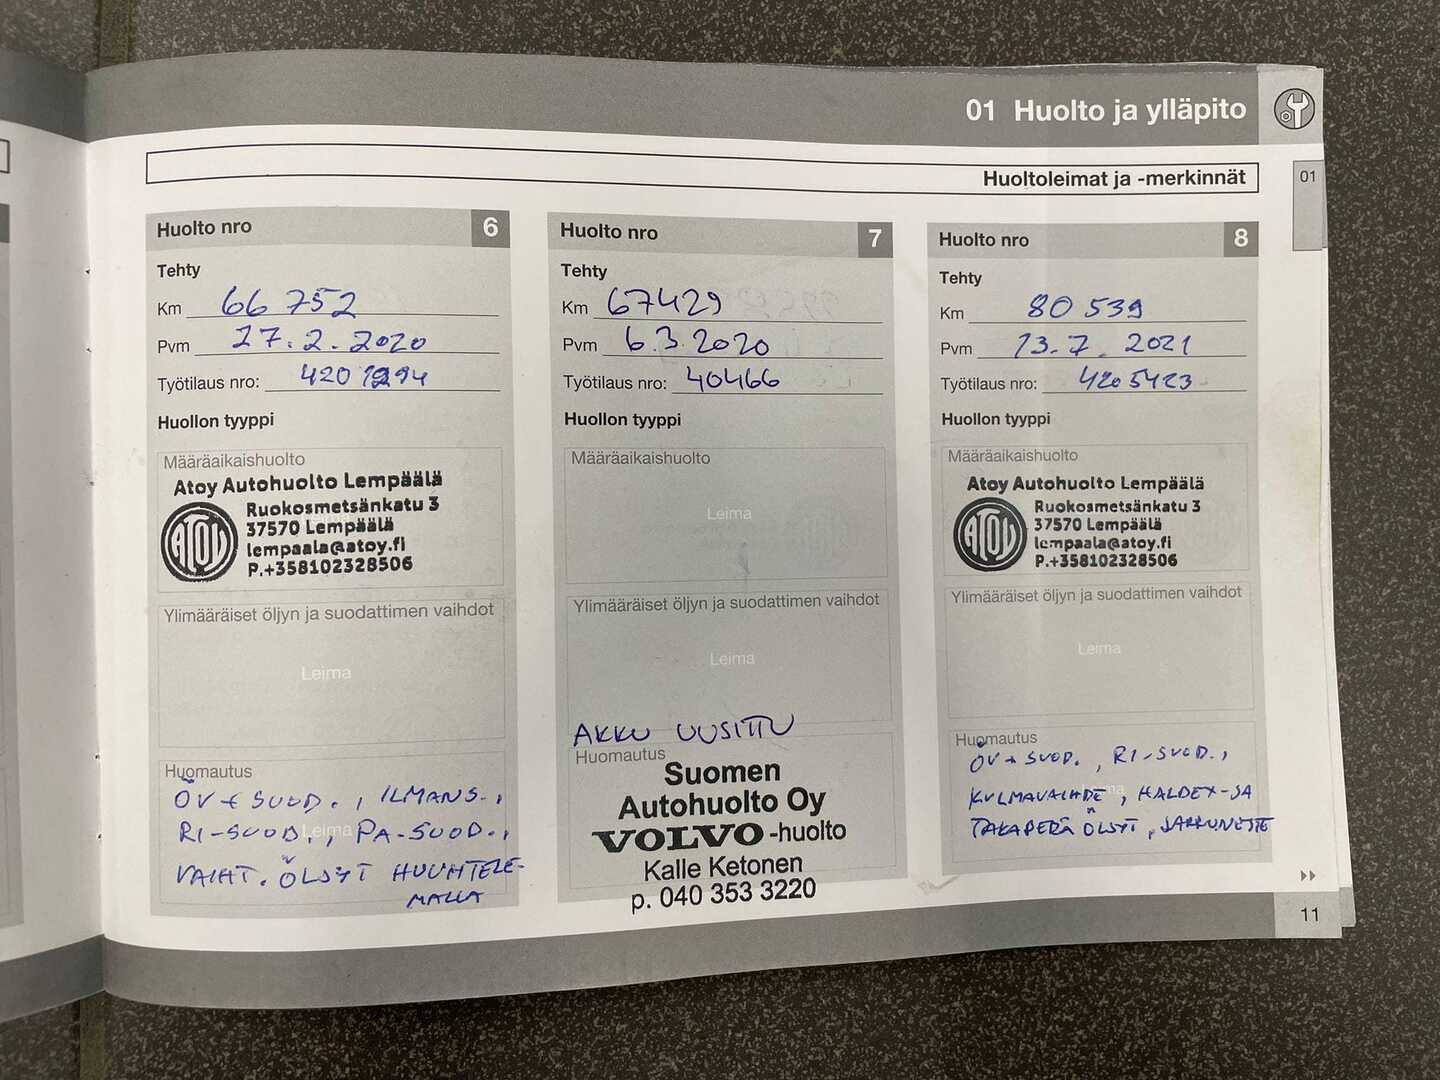 01 Huolto ja ylläpito
Huoltoleimat ja -merkinnät
01
Huolto nro 6
Tehty
Km 66 752
Pvm 27.2.2020
Työtilaus nro: 4201294
Huollon tyyppi
Määräaikaishuolto
Atoy Autohuolto Lempäälä
ATOY
Ruokosmetsänkatu 3
37570 Lempäälä
lempaala@atoy.fi
P.+358102328506
Ylimääräiset öljyn ja suodattimen vaihdot
Leima
Huomautus
ÖV + SUOD., ILMANS.,
RI-SUOD., PA-SUOD.,
Leima
VAIHT. ÖLJYT HUUHTELE-
MALLA
Huolto nro 7
Tehty
Km 67429
Pvm 6.3.2020
Työtilaus nro: 40466
Huollon tyyppi
Määräaikaishuolto
Leima
Ylimääräiset öljyn ja suodattimen vaihdot
Leima
AKKU UUSITTU
Huomautus
Suomen
Autohuolto Oy
VOLVO-huolto
Kalle Ketonen
p. 040 353 3220
Huolto nro 8
Tehty
Km 80 539
Pvm 13.7.2021
Työtilaus nro: 4205423
Huollon tyyppi
Määräaikaishuolto
Atoy Autohuolto Lempäälä
ATOY
Ruokosmetsänkatu 3
37570 Lempäälä
lempaala@atoy.fi
P.+358102328506
Ylimääräiset öljyn ja suodattimen vaihdot
Leima
Huomautus
ÖV + SUOD., RI-SUOD.,
KULMAVAIHDE, HALDEX-JA
TAKAPERÄ ÖLJYT, JARRUNESTE
11